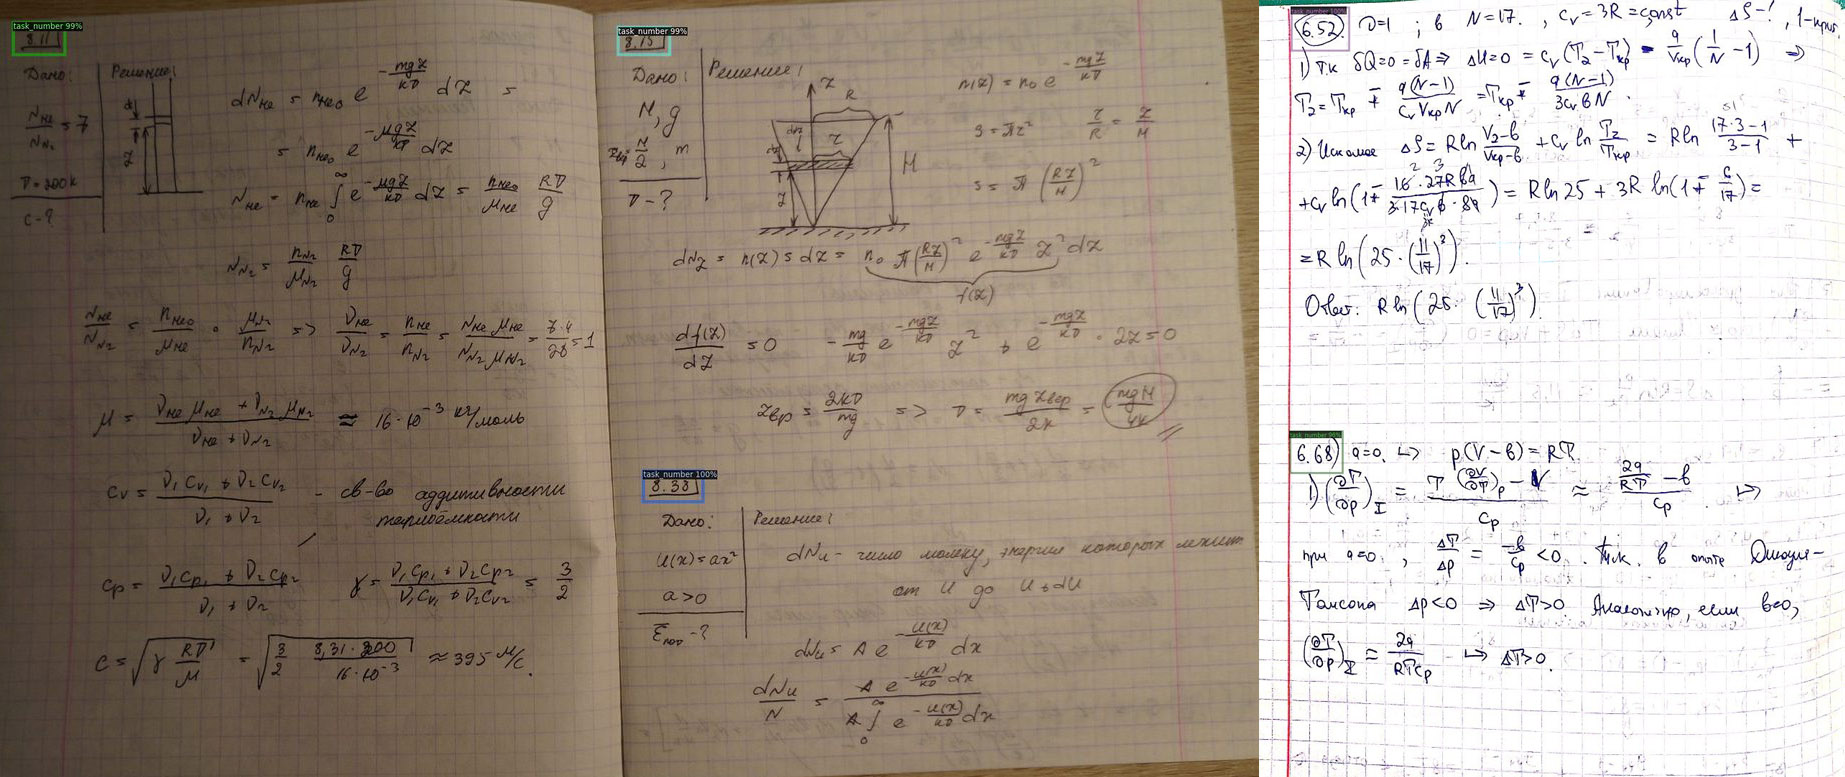 task_number 99%
8.11
Дано:
N_He/N_N2 = 7
T = 200 K
c - ?
Решение:
dz
z
dN_He = n_He0 e^(-mgz/kT) dz =
= n_He0 e^(-μgz/RT) dz
N_He = n_He ∫_0^∞ e^(-μgz/RT) dz = n_He0/μ_He RT/g
N_N2 = n_N2/μ_N2 RT/g
N_He/N_N2 = n_He0/μ_He · μ_N2/n_N2 => ν_He/ν_N2 = n_He/n_N2 = N_He μ_He/N_N2 μ_N2 = 7·4/28 = 1
μ = (ν_He μ_He + ν_N2 μ_N2)/(ν_He + ν_N2) ≈ 16·10^-3 кг/моль
c_V = (ν_1 c_V1 + ν_2 c_V2)/(ν_1 + ν_2) - св-во аддитивности
теплоёмкости
c_p = (ν_1 c_p1 + ν_2 c_p2)/(ν_1 + ν_2) γ = (ν_1 c_p1 + ν_2 c_p2)/(ν_1 c_V1 + ν_2 c_V2) = 3/2
c = √(γ RT/μ) = √(3/2 8,31·200/16·10^-3) ≈ 395 м/с.
task_number 99%
8.15
Дано:
H, g
z_вер = H/2, m
T - ?
Решение:
z
R
dz
r
H
z
n(z) = n_0 e^(-mgz/kT)
s = πr^2 r/R = z/H
s = π (Rz/H)^2
dN_z = n(z) s dz = n_0 π(R/H)^2 e^(-mgz/kT) z^2 dz
f(z)
df(z)/dz = 0 -mg/kT e^(-mgz/kT) z^2 + e^(-mgz/kT) · 2z = 0
z_вер = 2kT/mg => T = mg z_вер/2k = mgH/4k
task_number 100%
8.38
Дано:
u(x) = ax^2
a > 0
ε_пот - ?
Решение:
dN_u - число молекул, энергия которых лежит
от u до u + du
dN_u = A e^(-u(x)/kT) dx
dN_u/N = A e^(-u(x)/kT) dx / A ∫_0^∞ e^(-u(x)/kT) dx
task_number 100%
6.52. ν = 1 ; в N = 17. , c_V = 3R = const ΔS - ! , 1 - крит.
1) Т.к δQ = 0 = δA => ΔU = 0 = c_V(T_2 - T_кр) - a/V_кр (1/N - 1) =>
T_2 = T_кр - a(N-1)/c_V V_кр N = T_кр - a(N-1)/3c_V b N .
2) Искомое ΔS = R ln (V_2 - b)/(V_кр - b) + c_V ln T_2/T_кр = R ln (17·3 - 1)/(3 - 1) +
+ c_V ln(1 - 16·27Rba/3·17c_V b·8a) = R ln 25 + 3R ln(1 - 6/17) =
= R ln(25·(11/17)^3).
Ответ: R ln(25·(11/17)^3).
task_number 96%
6.68) a = 0. ↦ p(V - b) = RT.
1) (∂T/∂p)_I = (T (∂V/∂T)_p - V)/c_p ≈ (2a/RT - b)/c_p ↦
при a = 0 , ΔT/Δp = -b/c_p < 0 . Т.к. в опыте Джоуля-
Томсона Δp < 0 => ΔT > 0 Аналогично, если b = 0,
(∂T/∂p)_I = 2a/RTc_p ↦ ΔT > 0.